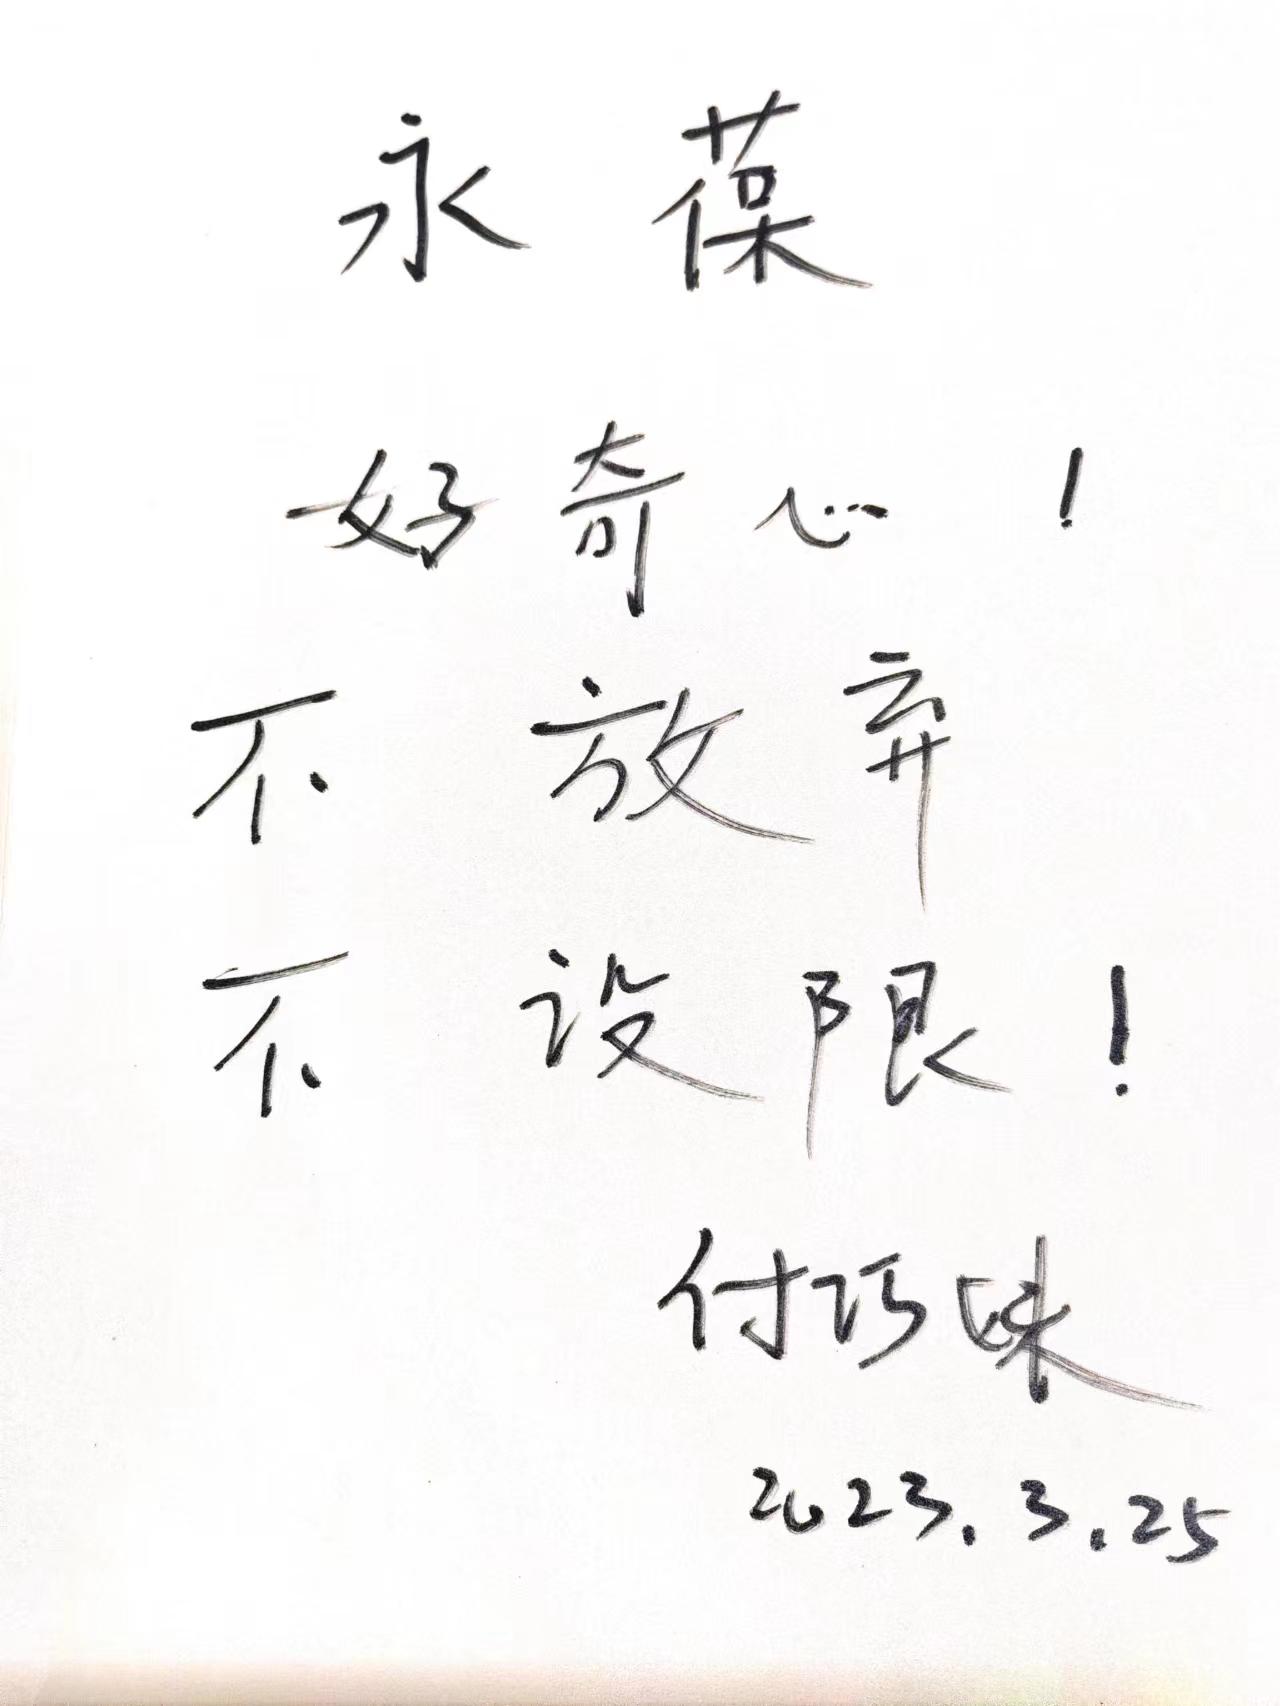 永葆
好奇心！
不放弃
不设限！
付巧妹
2023.3.25